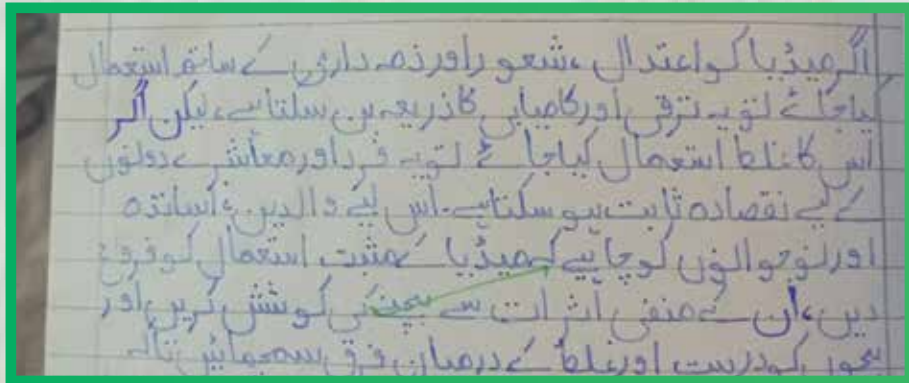 اگر میڈیا کو اعتدال، شعور اور ذمہ داری کے ساتھ استعمال
کیا جائے تو یہ ترقی اور کامیابی کا ذریعہ بن سکتا ہے، لیکن اگر
اس کا غلط استعمال کیا جائے تو یہ فرد اور معاشرے دونوں
کے لیے نقصادہ ثابت ہو سکتا ہے۔ اس لیے والدین، اساتذہ
اور نوجوانوں کو چاہیے کہ میڈیا کے مثبت استعمال کو فروغ
دیں، ان کے منفی اثرات سے بچنے کی کوشش کریں اور
بچوں کو درست اور غلط کے درمیان فرق سمجھائیں تاکہ